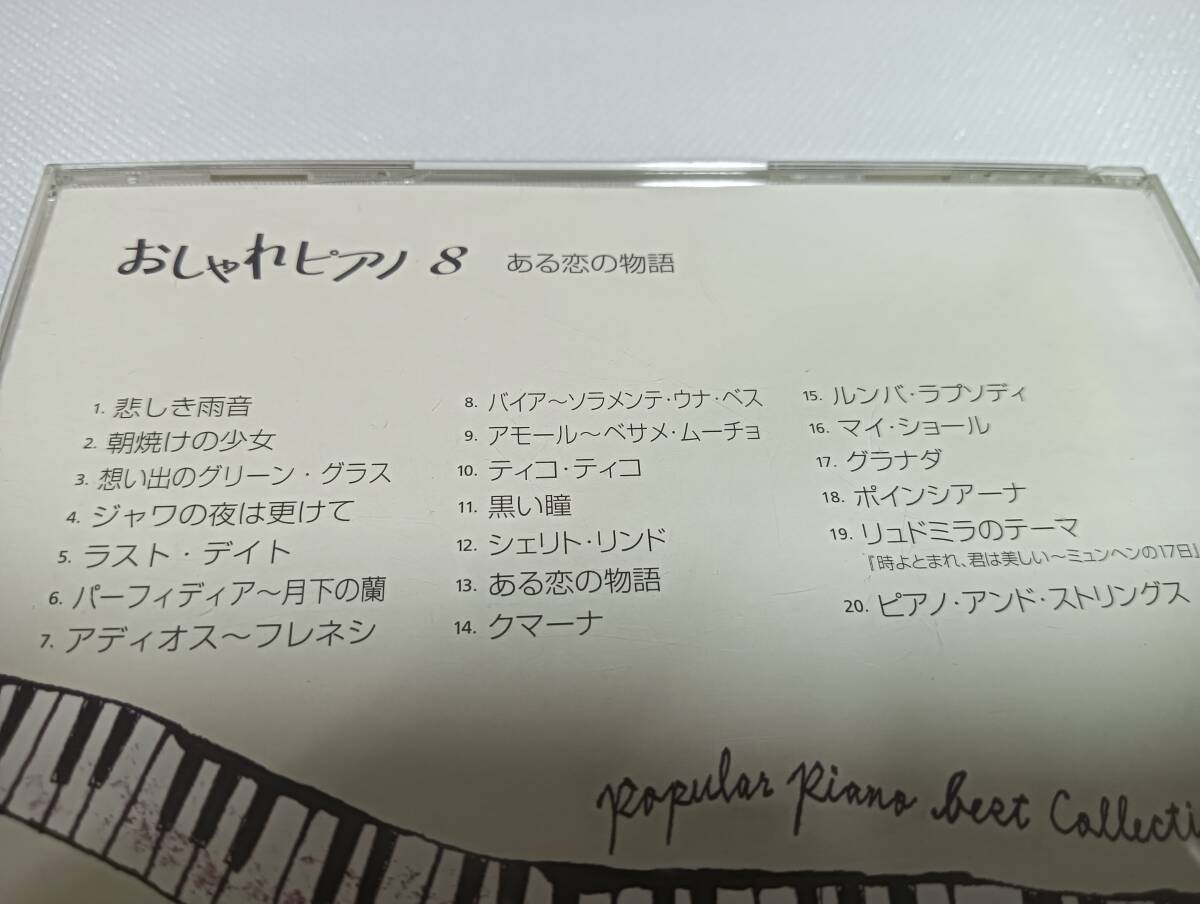 おしゃれピアノ 8 ある恋の物語
1. 悲しき雨音
2. 朝焼けの少女
3. 想い出のグリーン・グラス
4. ジャワの夜は更けて
5. ラスト・デイト
6. パーフィディア～月下の蘭
7. アディオス～フレネシ
8. バイア～ソラメンテ・ウナ・ベス
9. アモール～ベサメ・ムーチョ
10. ティコ・ティコ
11. 黒い瞳
12. シェリト・リンド
13. ある恋の物語
14. クマーナ
15. ルンバ・ラプソディ
16. マイ・ショール
17. グラナダ
18. ポインシアーナ
19. リュドミラのテーマ
『時よとまれ、君は美しい～ミュンヘンの17日』
20. ピアノ・アンド・ストリングス
Popular Piano Best Collecti